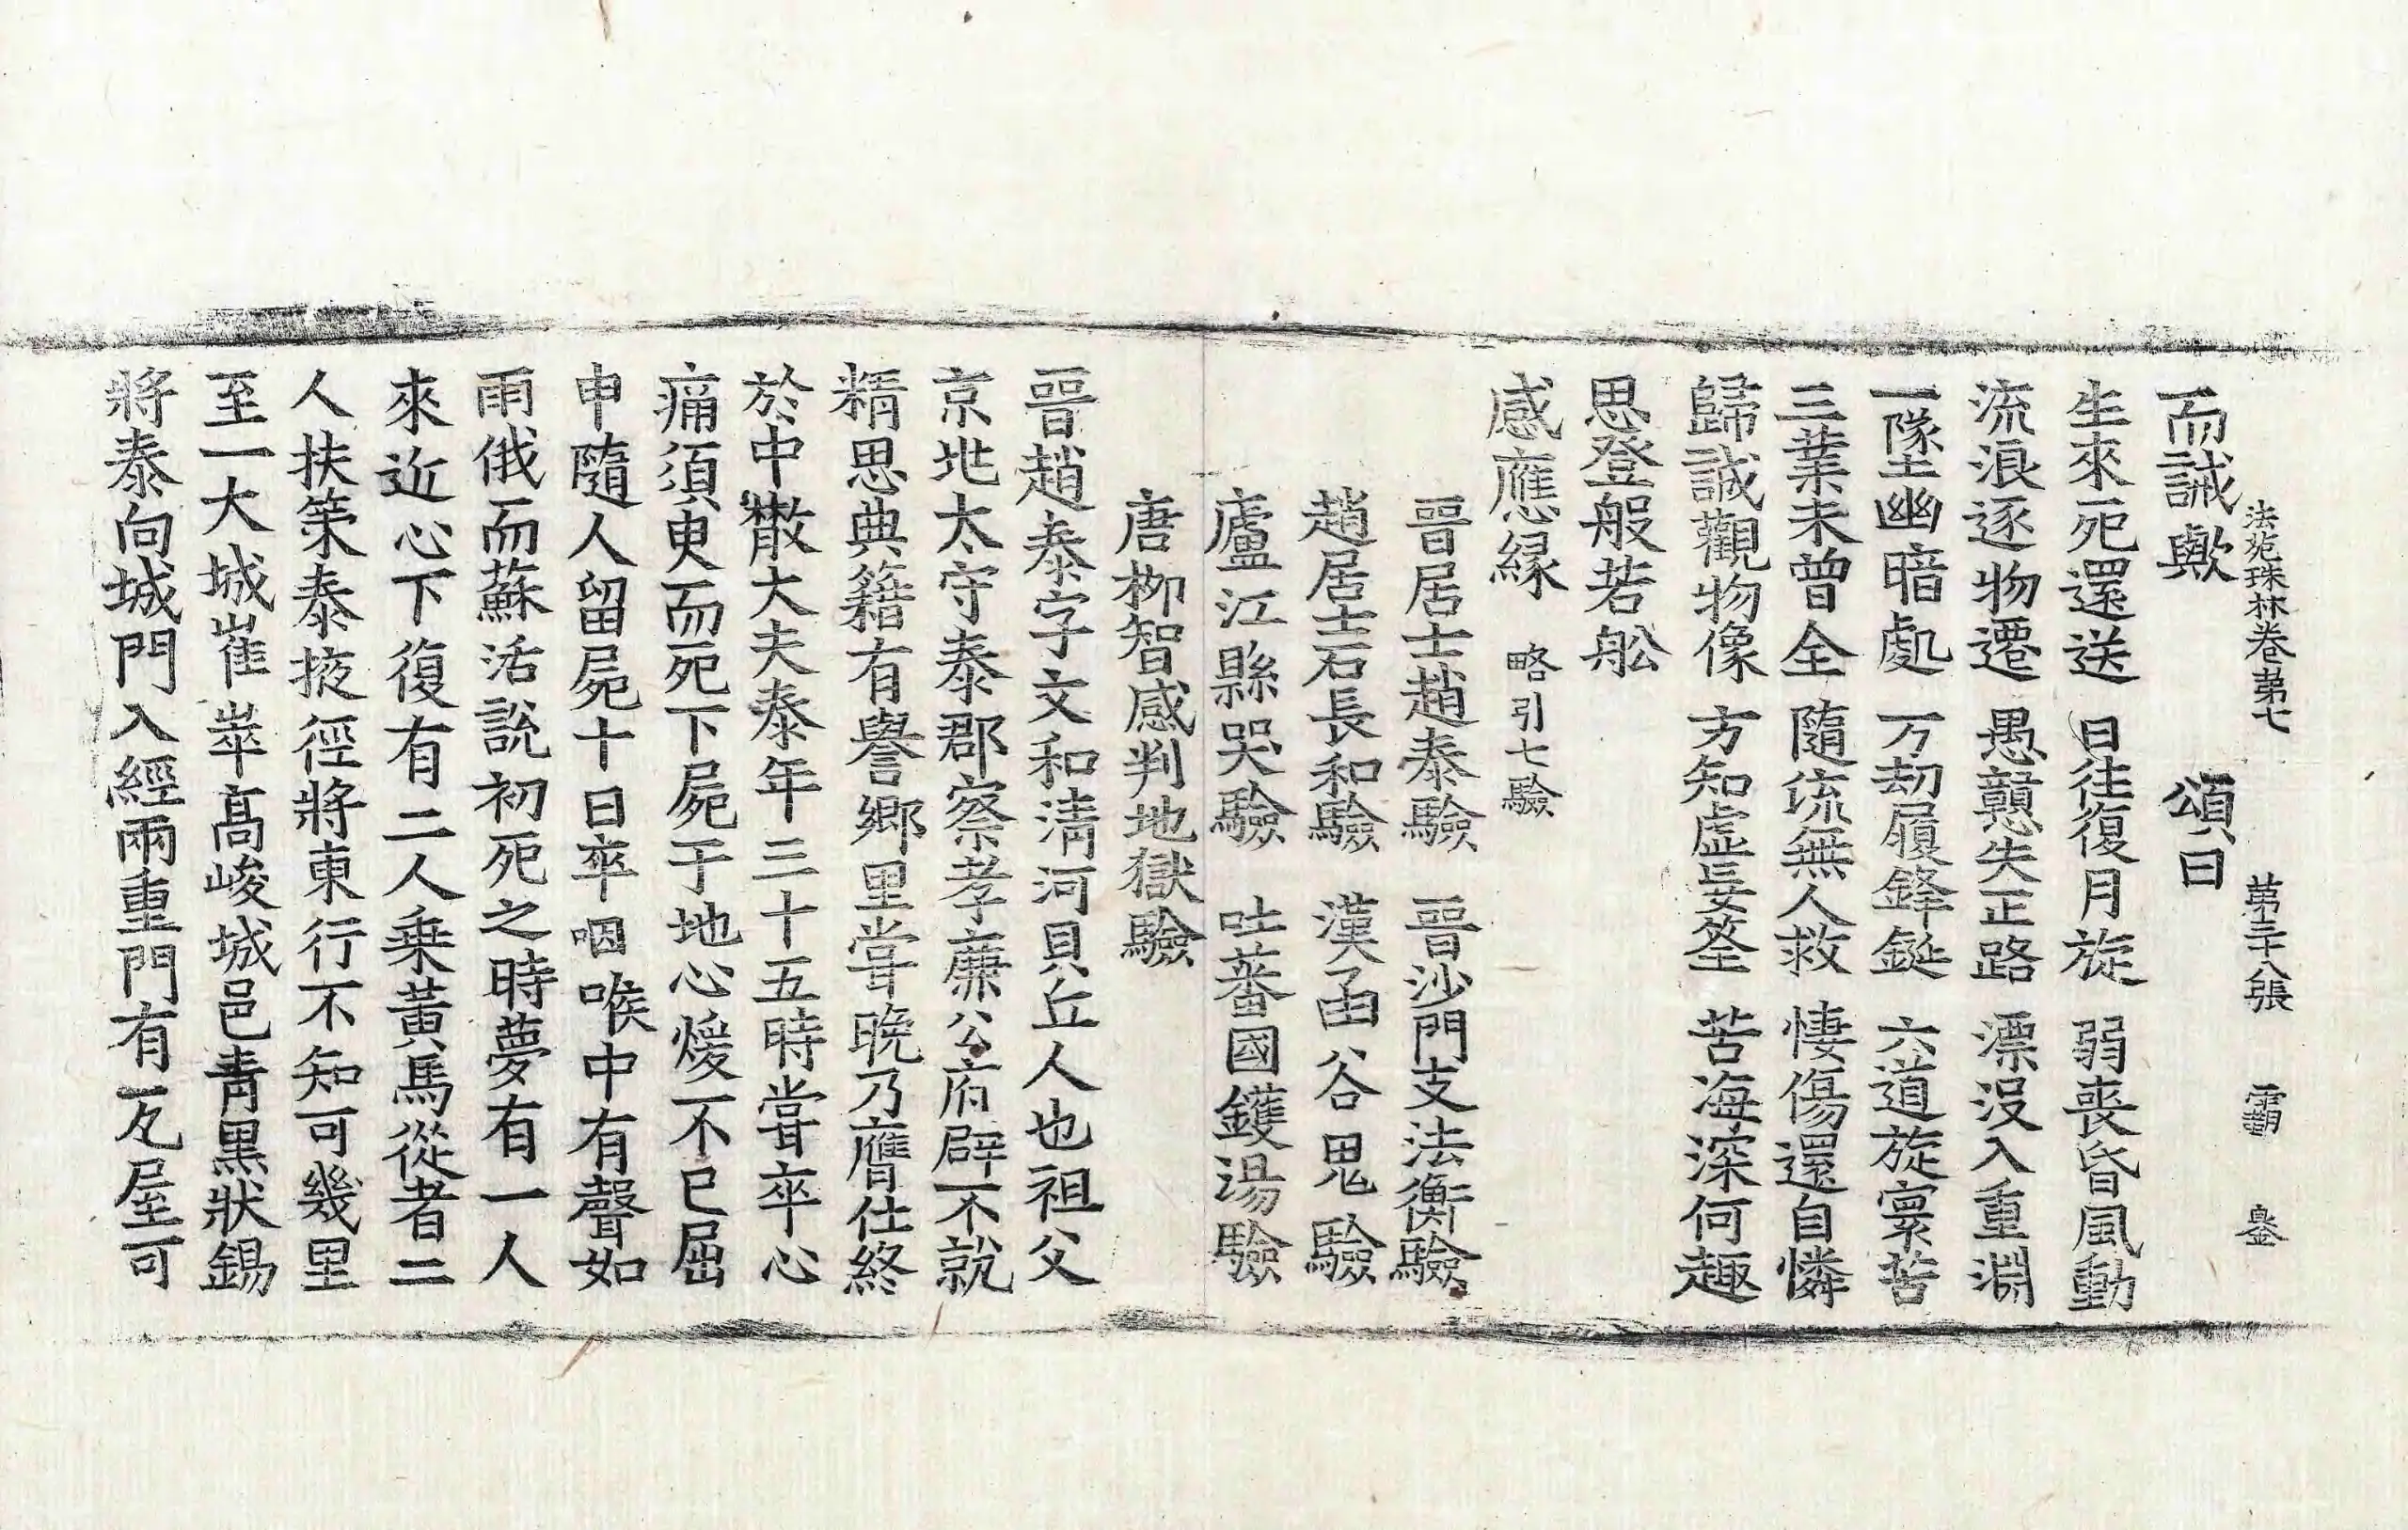 法苑珠林卷第七 第三十八張 霸
而誡歟 頌曰
生來死還送 日往復月旋 弱喪昏風動
流浪逐物遷 愚戇失正路 漂沒入重淵
一墜幽暗處 万劫履鋒鋋 六道旋寰苦
三業未曾全 隨流無人救 悽傷還自憐
歸誠觀物像 方知虛妄筌 苦海深何趣
思登般若舩
感應緣 略引七驗
晉居士趙泰驗 晉沙門支法衡驗
趙居士石長和驗 漢函谷鬼驗
廬江縣哭驗 吐蕃國鑊湯驗
唐柳智感判地獄驗
晉趙泰字文和清河貝丘人也祖父
京兆太守泰郡察孝廉公府辟不就
精思典籍有譽鄉里甞晚乃膺仕終
於中散大夫泰年三十五時甞卒心
痛須臾而死下屍于地心煖不已屈
申隨人留屍十日卒咽喉中有聲如
雨俄而蘇活說初死之時夢有一人
來近心下復有二人乗黃馬從者二
人扶策泰掖徑將東行不知可幾里
至一大城崔崒髙峻城邑青黑狀錫
將泰向城門入經兩重門有瓦屋可